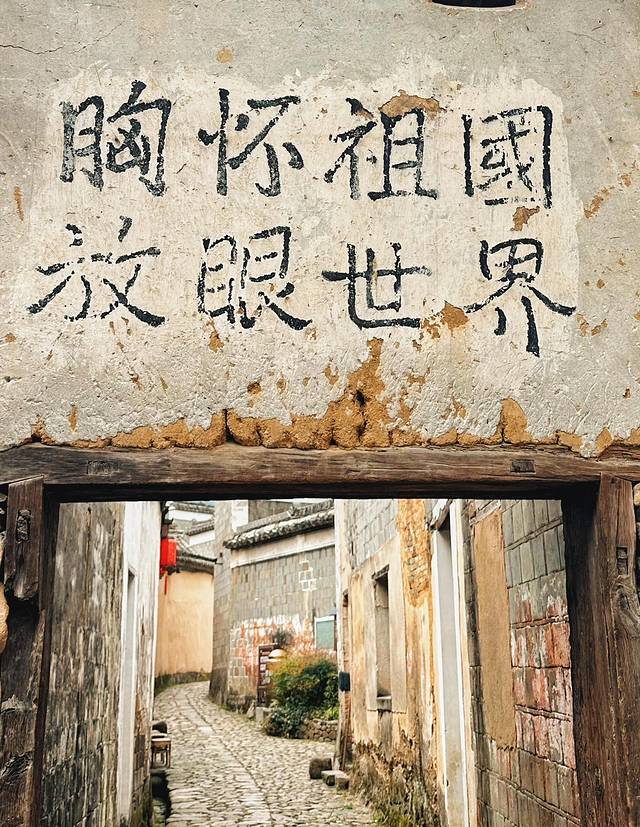 胸怀祖國
放眼世界